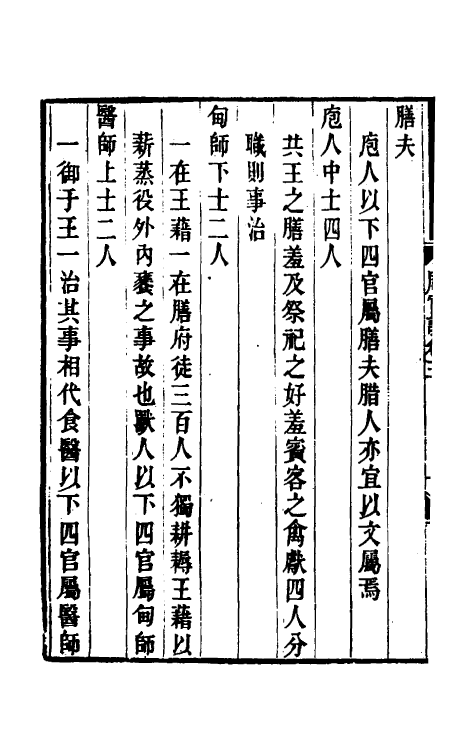 膳夫
庖人以下四官屬膳夫腊人亦宜以文屬焉
庖人中士四人
共王之膳羞及祭祀之好羞賓客之禽獻四人分
職則事治
甸師下士二人
一在王藉一在膳府徒三百人不獨耕耨王藉以
薪蒸役外內饔之事故也獸人以下四官屬甸師
醫師上士二人
一御于王一治其事相代食醫以下四官屬醫師